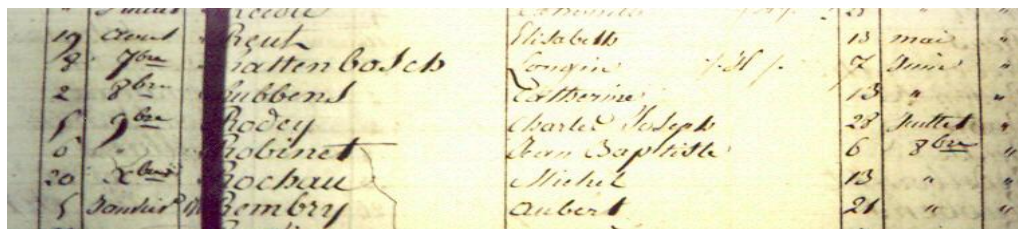 19 aout Reuh Elisabeth 13 mai "
8 7bre Rattenbosch Longin 7 Juin "
2 8bre Rubbens Catherine 13 " "
5 9bre Rodey Charles Joseph 28 Juillet "
6 " Robinet Jean Baptiste 6 8bre "
20 Xbre Rochau Michel 13 " "
5 Janvier Rembry aubert 21 " "